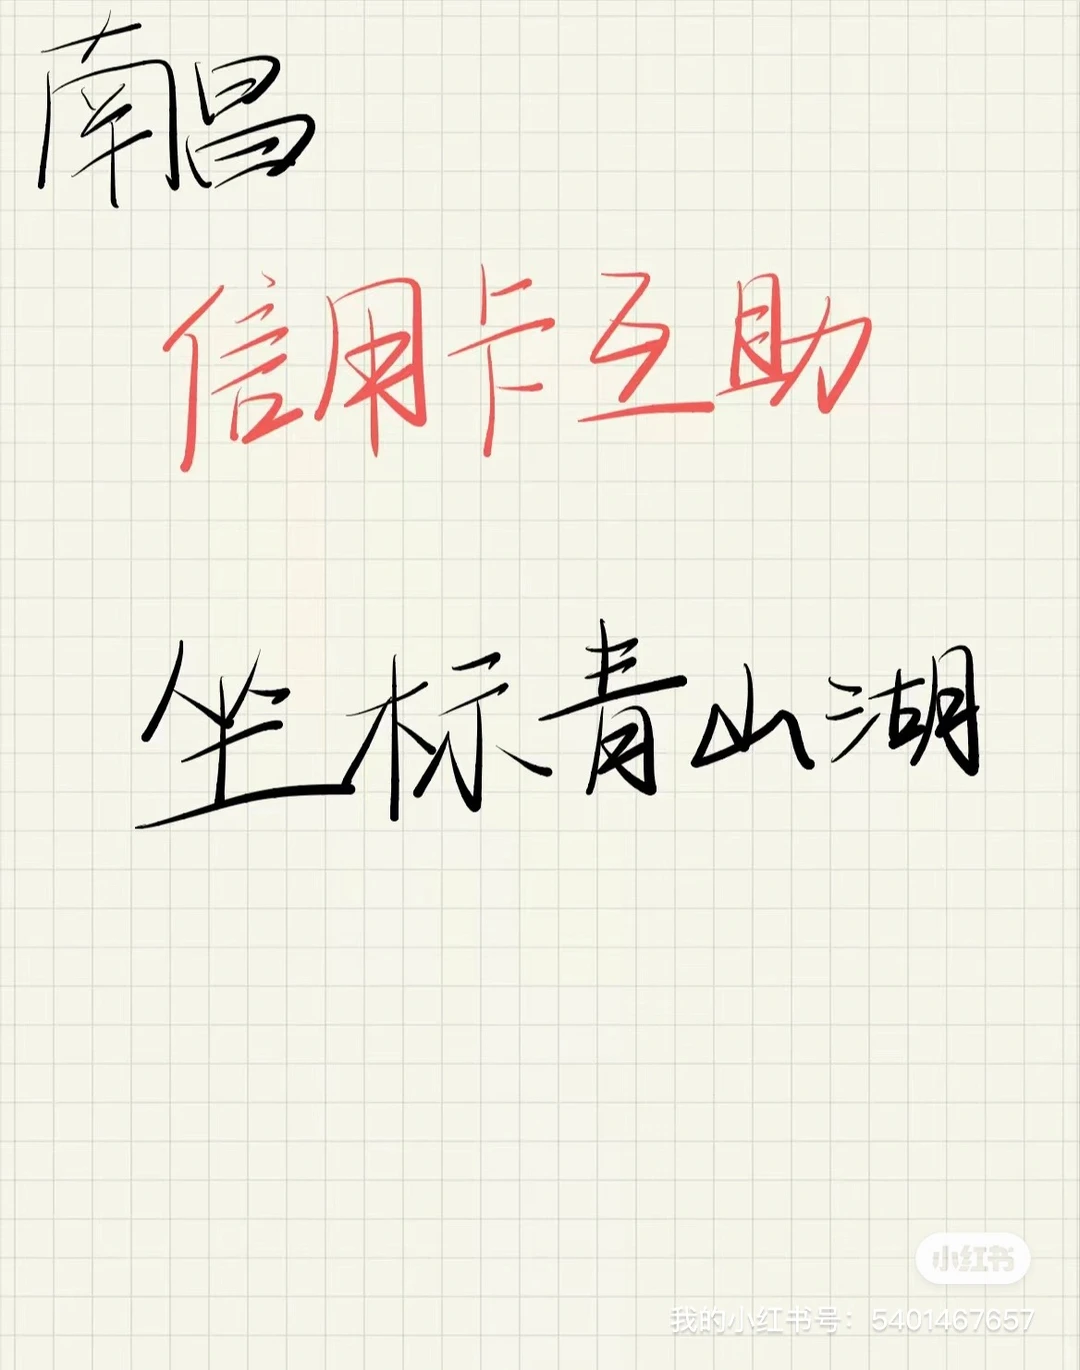 南昌
信用卡互助
坐标青山湖
小红书
我的小红书号：5401467657